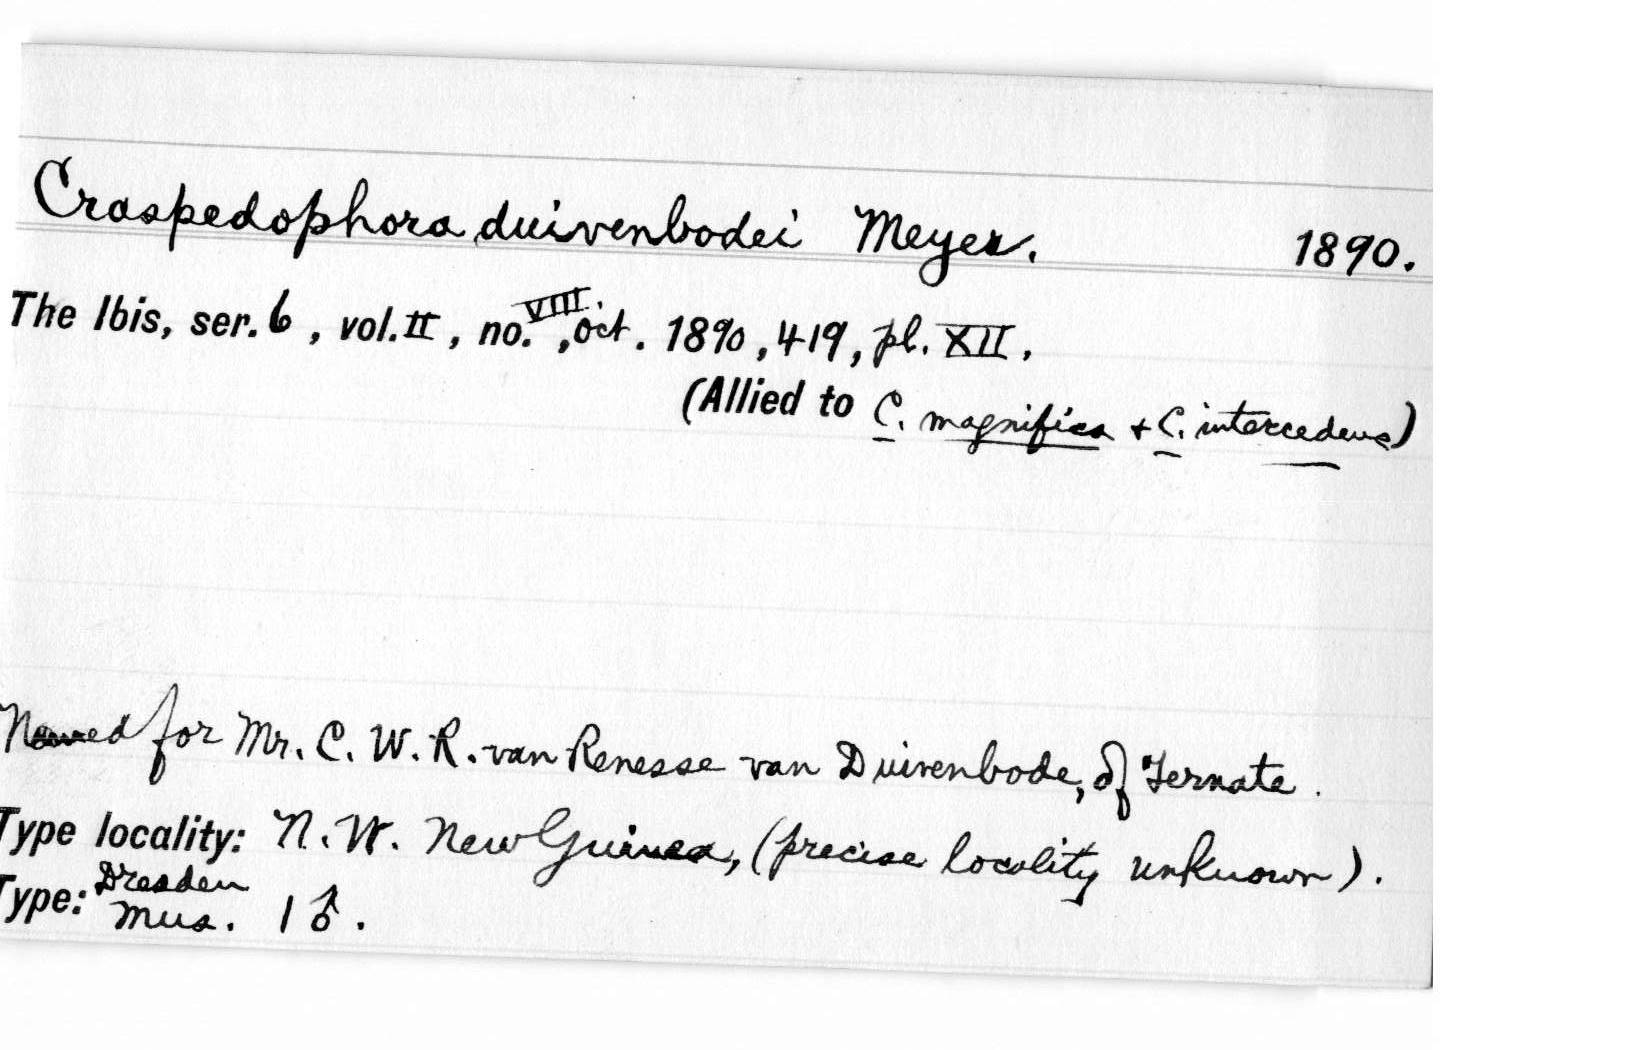 Craspedophora duivenbodei Meyer. 1890.
The Ibis, ser. 6, vol. II, no. VIII., Oct. 1890, 419, pl. XII.
(Allied to C. magnifica + C. intercedens)
Named for Mr. C. W. R. van Renesse van Duivenbode, of Ternate.
Type locality: N. W. New Guinea, (precise locality unknown).
Type: Dresden Mus. 1 ♂.